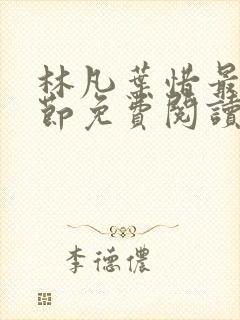 林凡葉惜最
節免費閱讀
李德儂